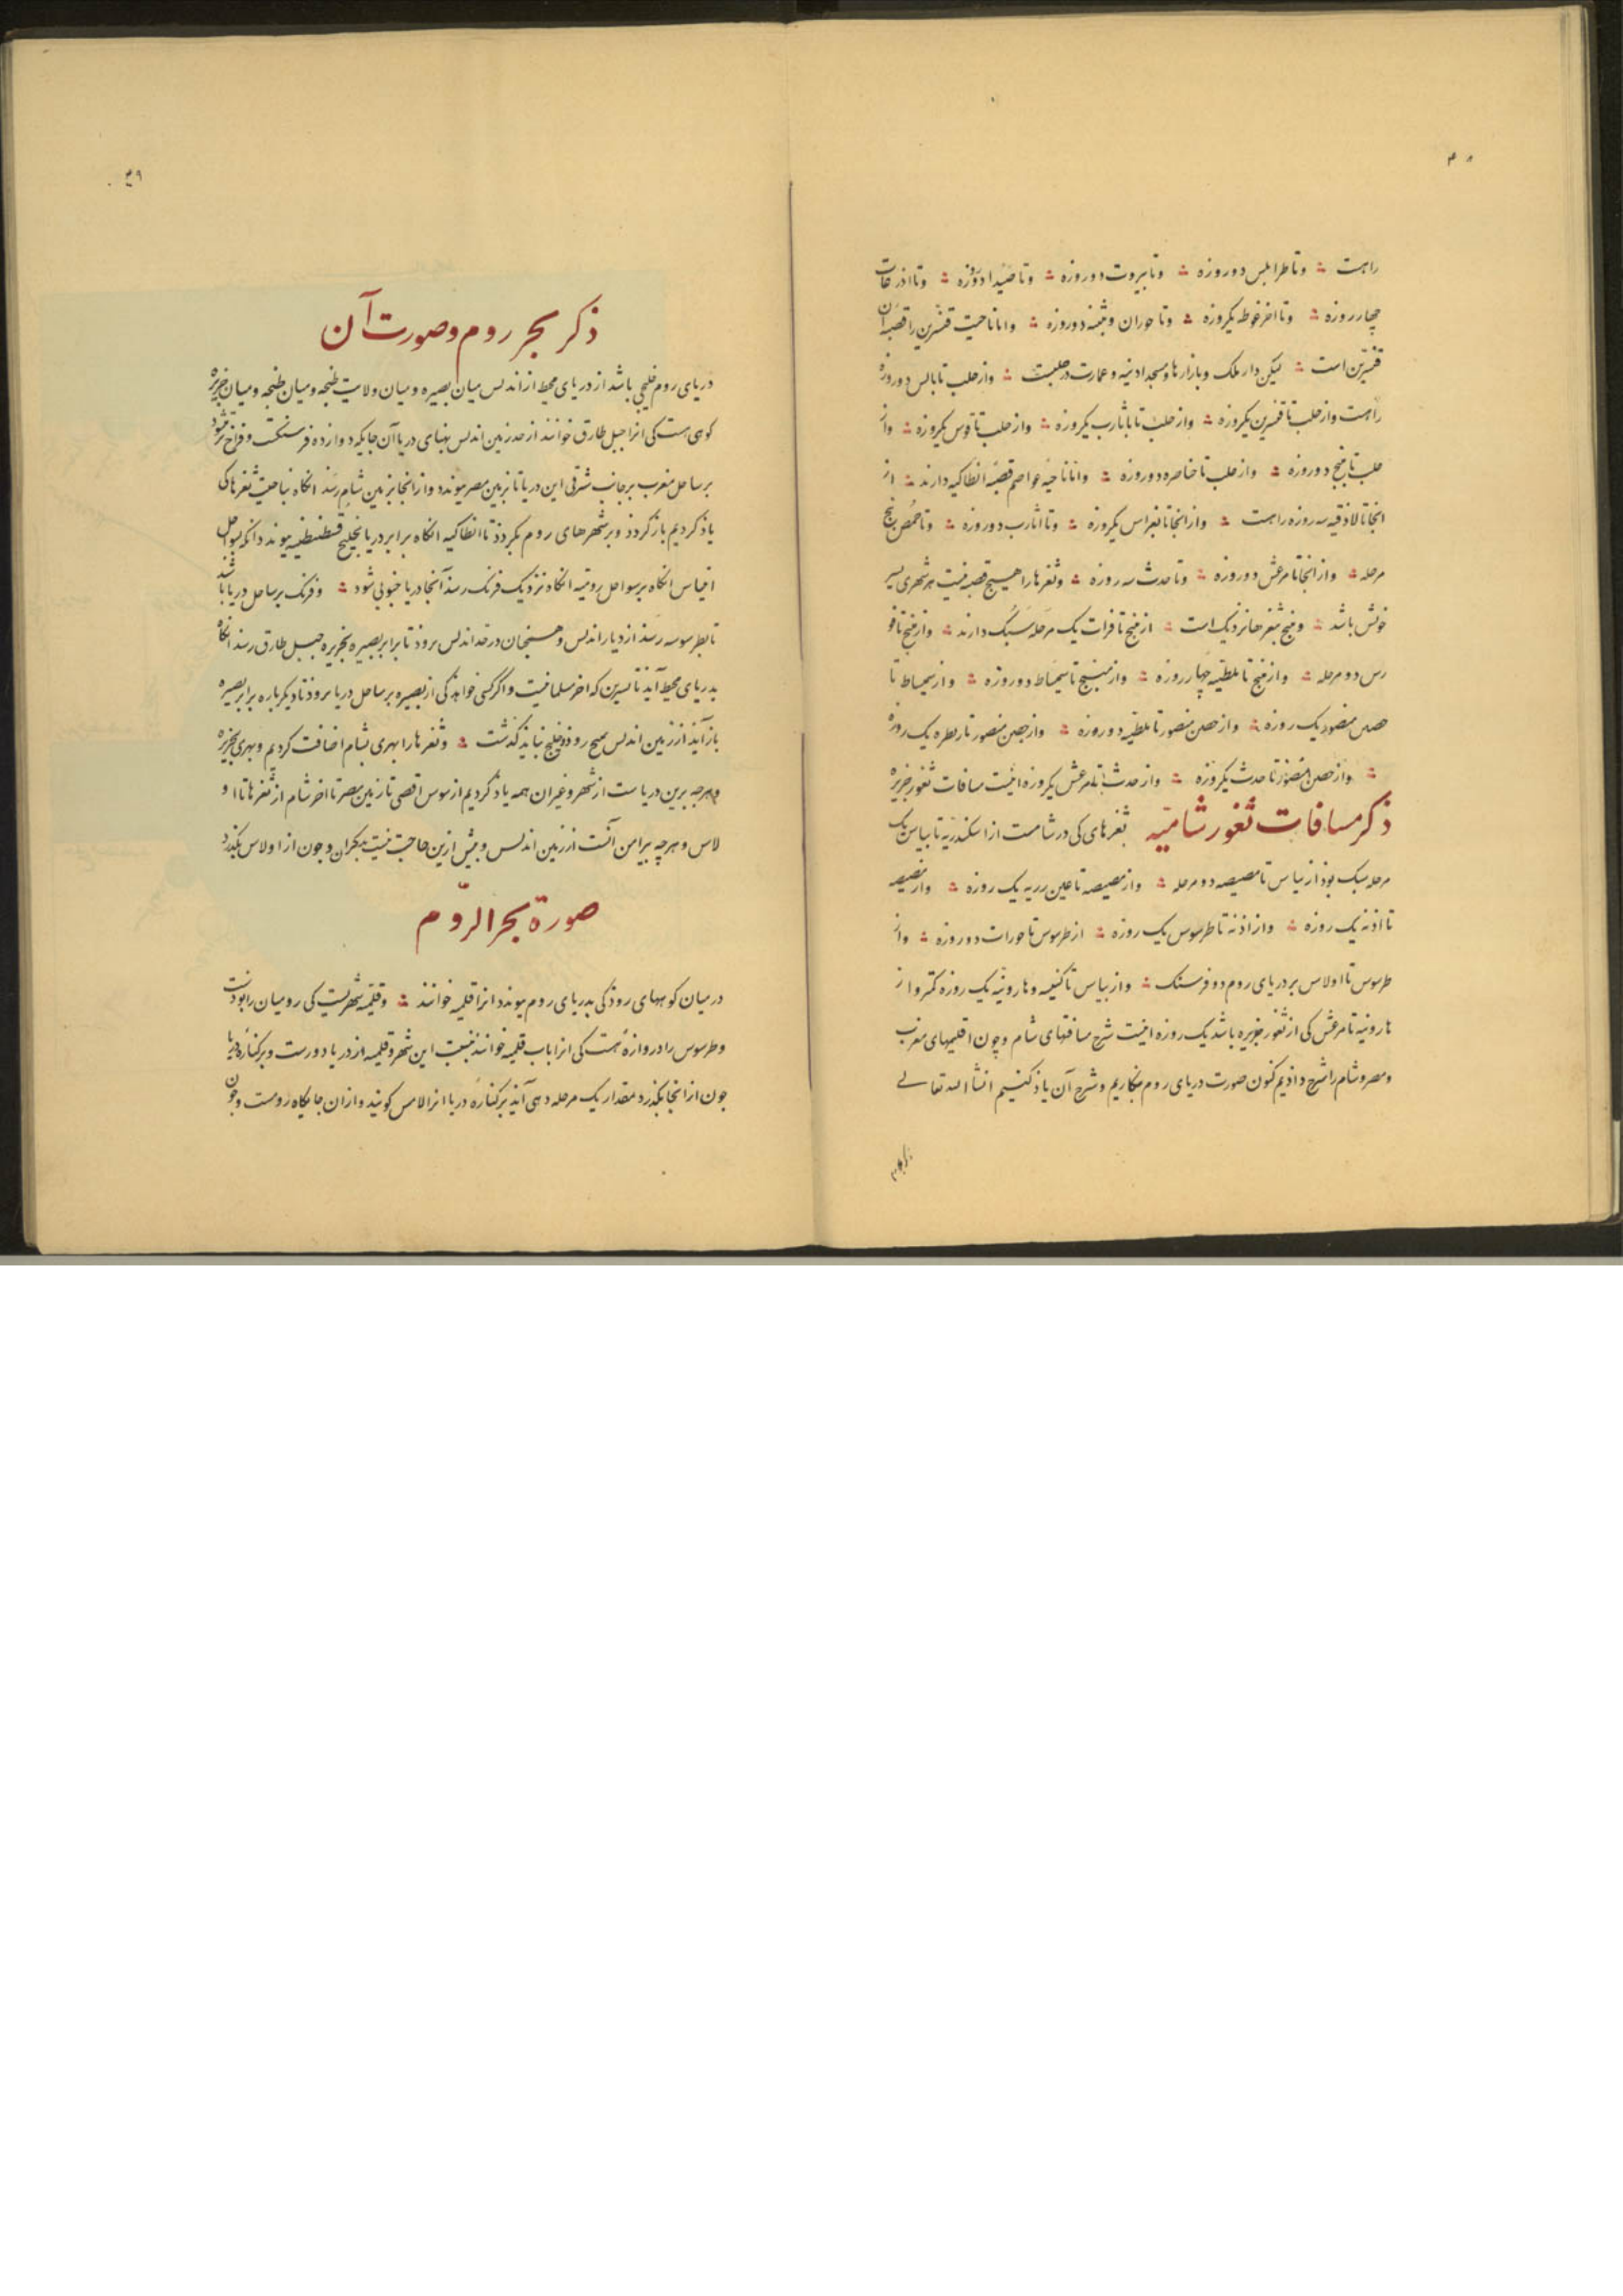 راهست ؞ وتا طرابلس دو روزه ؞ وتا بیروت دو روزه ؞ وتا صیدا دو روزه ؞ وتا اذرعات
چهار روزه ؞ وتا اخر غوطه یکروزه ؞ وتا حوران و بثنیه دو روزه ؞ واما ناحیت قنسرین را قصبه آن
قنسرین است ؞ لیکن دار ملک وبازارها ومسجد ادینه وعمارت در حلبست ؞ واز حلب تا بالس دو روزه
راهست واز حلب تا قنسرین یکروزه ؞ واز حلب تا باثارب یکروزه ؞ واز حلب تا قوس یکروزه ؞ واز
حلب تا منبج دو روزه ؞ واز حلب تا خناصره دو روزه ؞ واما ناحیه عواصم قصبه انطاکیه دارند ؞ از
انجا تا لاذقیه سه روزه راهست ؞ واز انجا تا بغراس یکروزه ؞ وتا اثارب دو روزه ؞ وتا حمص پنج
مرحله ؞ واز انجا تا مرعش دو روزه ؞ وتا حدث سه روزه ؞ وثغرها را هیچ قصبه نیست هر شهری بسر
خوش باشد ؞ ومنبج بثغرها نزدیک است ؞ از منبج تا فرات یک مرحله سبک دارند ؞ واز منبج تا قو
رس دو مرحله ؞ واز منبج تا ملطیه چهار روزه ؞ واز منبج تا سمیساط دو روزه ؞ واز سمیساط تا
حصن منصور یک روزه ؞ واز حصن منصور تا ملطیه دو روزه ؞ واز حصن منصور تا زبطره یک روزه
؞ واز حصن منصور تا حدث یکروزه ؞ واز حدث تا مرعش یکروزه اینست مسافات ثغور جزیره
ذکر مسافات ثغور شامیه ثغرهای کی در شامست از اسکندریه تا بیاس یک
مرحله سبک بوذ از بیاس تا مصیصه دو مرحله ؞ واز مصیصه تا عین زربه یک روزه ؞ واز مصیصه
تا اذنه یک روزه ؞ واز اذنه تا طرسوس یک روزه ؞ از طرسوس تا جوزات دو روزه ؞ واز
طرسوس تا اولاس بر دریای روم دو فرسنک ؞ واز بیاس تا کنیسه وهارونیه یک روزه کمتر واز
هارونیه تا مرعش کی از ثغور جزیره باشد یک روزه اینست شرح مسافتهای شام وچون اقلیمهای مغرب
ومصر وشام را شرح داذیم کنون صورت دریای روم بنکاریم وشرح آن یاذ کنیم انشا الله تعالی
۳۹
ذکر بحر روم وصورت آن
دریای روم خلیجی باشد از دریای محیط از اندلس میان بصیره ومیان ولایت طنجه ومیان طنجه ومیان جزیره
کوهی هست کی انرا جبل طارق خوانند از حد زمین اندلس پهنای دریا آن جایکه دوازده فرسنکست وفراخ تر شود
بر ساحل مغرب بر جانب شرقی این دریا تا بزمین مصر پیوندد واز انجا بزمین شام رسد انکاه بناحیت ثغرها کی
یاذ کردیم باز کردد وبر شهرهای روم بکردد تا انطاکیه انکاه برابر دریا بخلیج قسطنطنیه پیوندد انکه بسواحل
اثیناس انکاه بر سواحل رومیه انکاه نزدیک فرنک رسد آنجا دریا جنوبی شود ؞ وفرنک بر ساحل دریا باشد
تا بطرسوسه رسد از دیار اندلس وهمچنان در حد اندلس بروذ تا برابر بصیره بجزیره جبل طارق رسد انکاه
بدریای محیط آید تا شنترین که اخر مسلمانیست واکر کسی خواهد کی از بصیره بر ساحل دریا بروذ تا دیکر باره برابر بصیره
باز آید از زمین اندلس بهیچ روذ وخلیج نباید کذشت ؞ وثغرها را بهری بشام اضافت کردیم وبهری بجزیره
وهرچه برین دریاست از شهر وغیر ان همه یاذ کردیم از سوس اقصی تا زمین مصر تا اخر شام از ثغرها تا او
لاس وهرچه پیرامن آنست از زمین اندلس وبیش ازین حاجت نیست بمکران وچون از اولاس بکذرد
صورة بحر الروم
در میان کوههای روذ کی بدریای روم پیوندد انرا قلمیه خوانند ؞ وقلمیه شهریست کی رومیان را بودست
وطرسوس را دروازه هست کی انرا باب قلمیه خوانند نسبت این شهر وقلمیه از دریا دورست وبر کناره دریا
چون از انجا بکذرد مقدار یک مرحله دهی آید بر کناره دریا انرا لامس کویند وازان جایکاه روست وچون